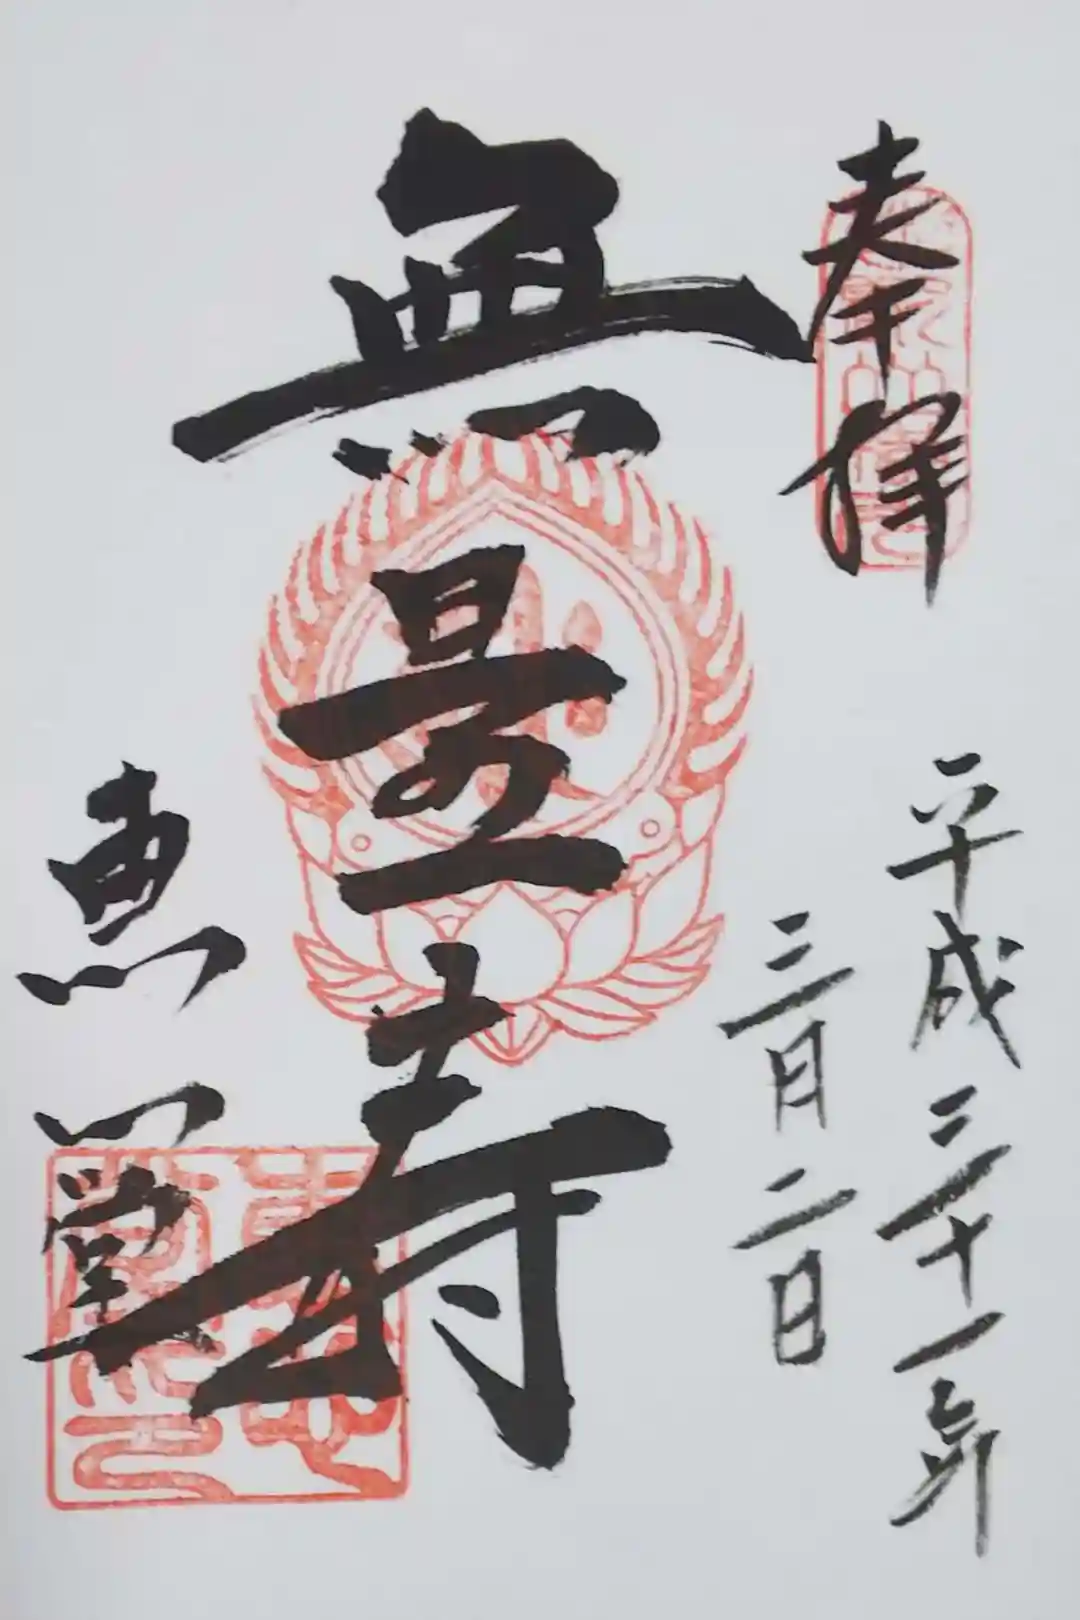 奉拝
平成三十一年
三月二日
無量寿
恵心堂